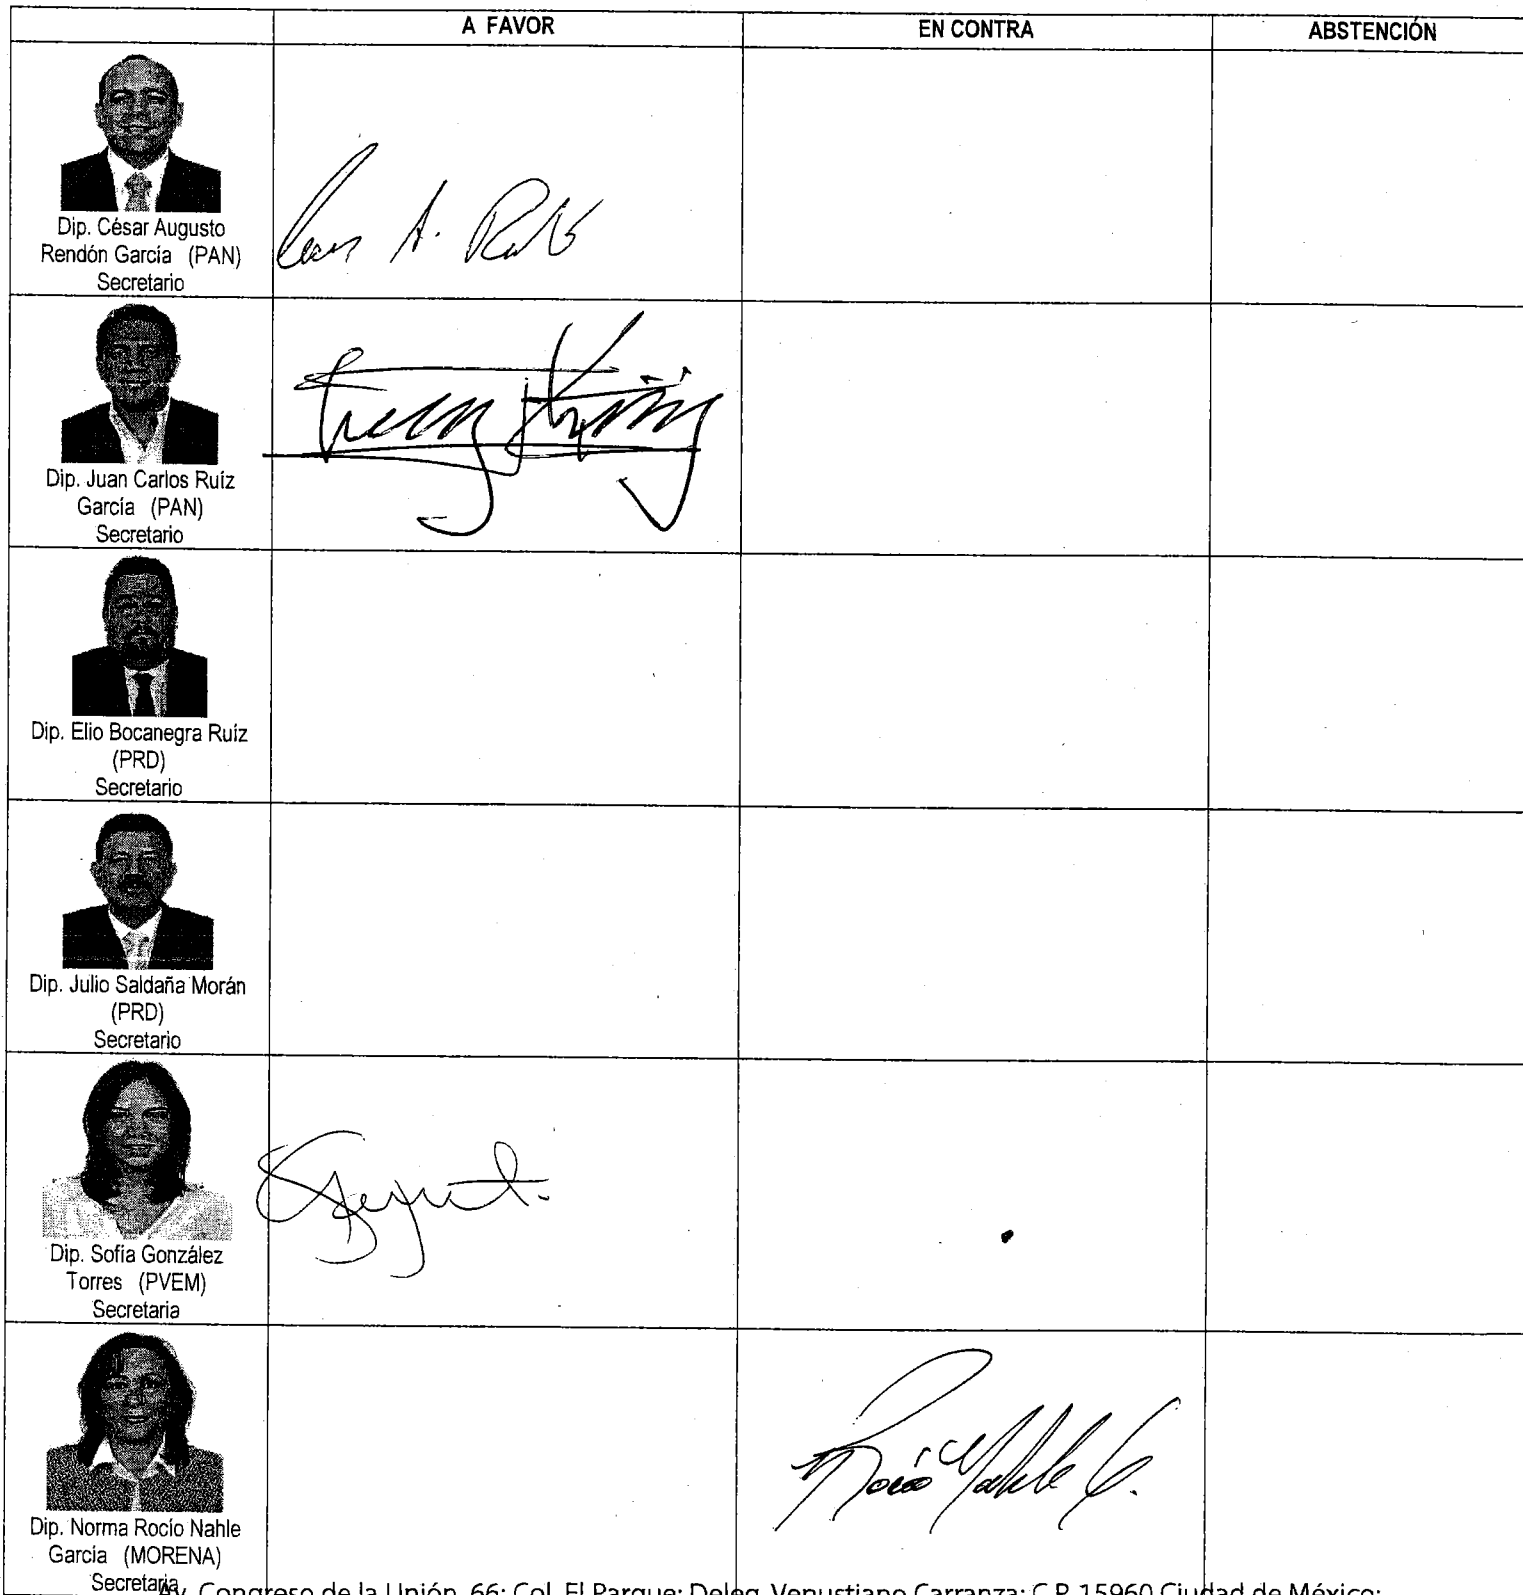 A FAVOR
EN CONTRA
ABSTENCIÓN
Dip. César Augusto
Rendón García (PAN)
Secretario
Dip. Juan Carlos Ruíz
García (PAN)
Secretario
Dip. Elio Bocanegra Ruíz
(PRD)
Secretario
Dip. Julio Saldaña Morán
(PRD)
Secretario
Dip. Sofía González
Torres (PVEM)
Secretaria
Dip. Norma Rocío Nahle
García (MORENA)
Secretaria
Rocío Nahle G.
Av. Congreso de la Unión, 66; Col. El Parque; Deleg. Venustiano Carranza; C.P. 15960 Ciudad de México;